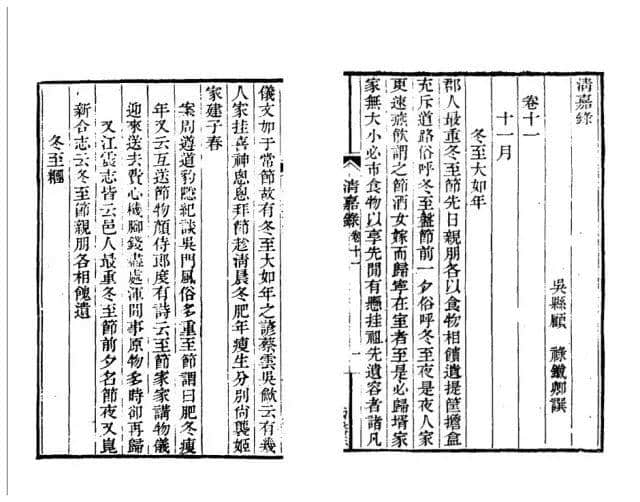 清嘉錄
吳縣顧 祿鐵卿譔
卷十一
十一月
冬至大如年
郡人最重冬至節先日親朋各以食物相饋遺提筐擔盒
充斥道路俗呼冬至盤節前一夕俗呼冬至夜是夜人家
更速燕飲謂之節酒女嫁而歸寧在室者至是必歸壻家
家無大小必市食物以享先間有懸挂祖先遺容者諸凡
清嘉錄 卷十一 一
儀文如于常節故有冬至大如年之諺蔡雲吳歈云有幾
人家挂喜神悤悤拜節趁清晨冬肥年瘦生分別尚襲姬
家建子春
案周遵道豹隱紀談吳門風俗多重至節謂曰肥冬瘦
年又云互送節物顏侍郎度有詩云至節家家講物儀
迎來送去費心機脚錢盡處渾閒事原物多時卻再歸
又江震志皆云邑人最重冬至節前夕名節夜又崑
新合志云冬至節親朋各相餽遺
冬至糰